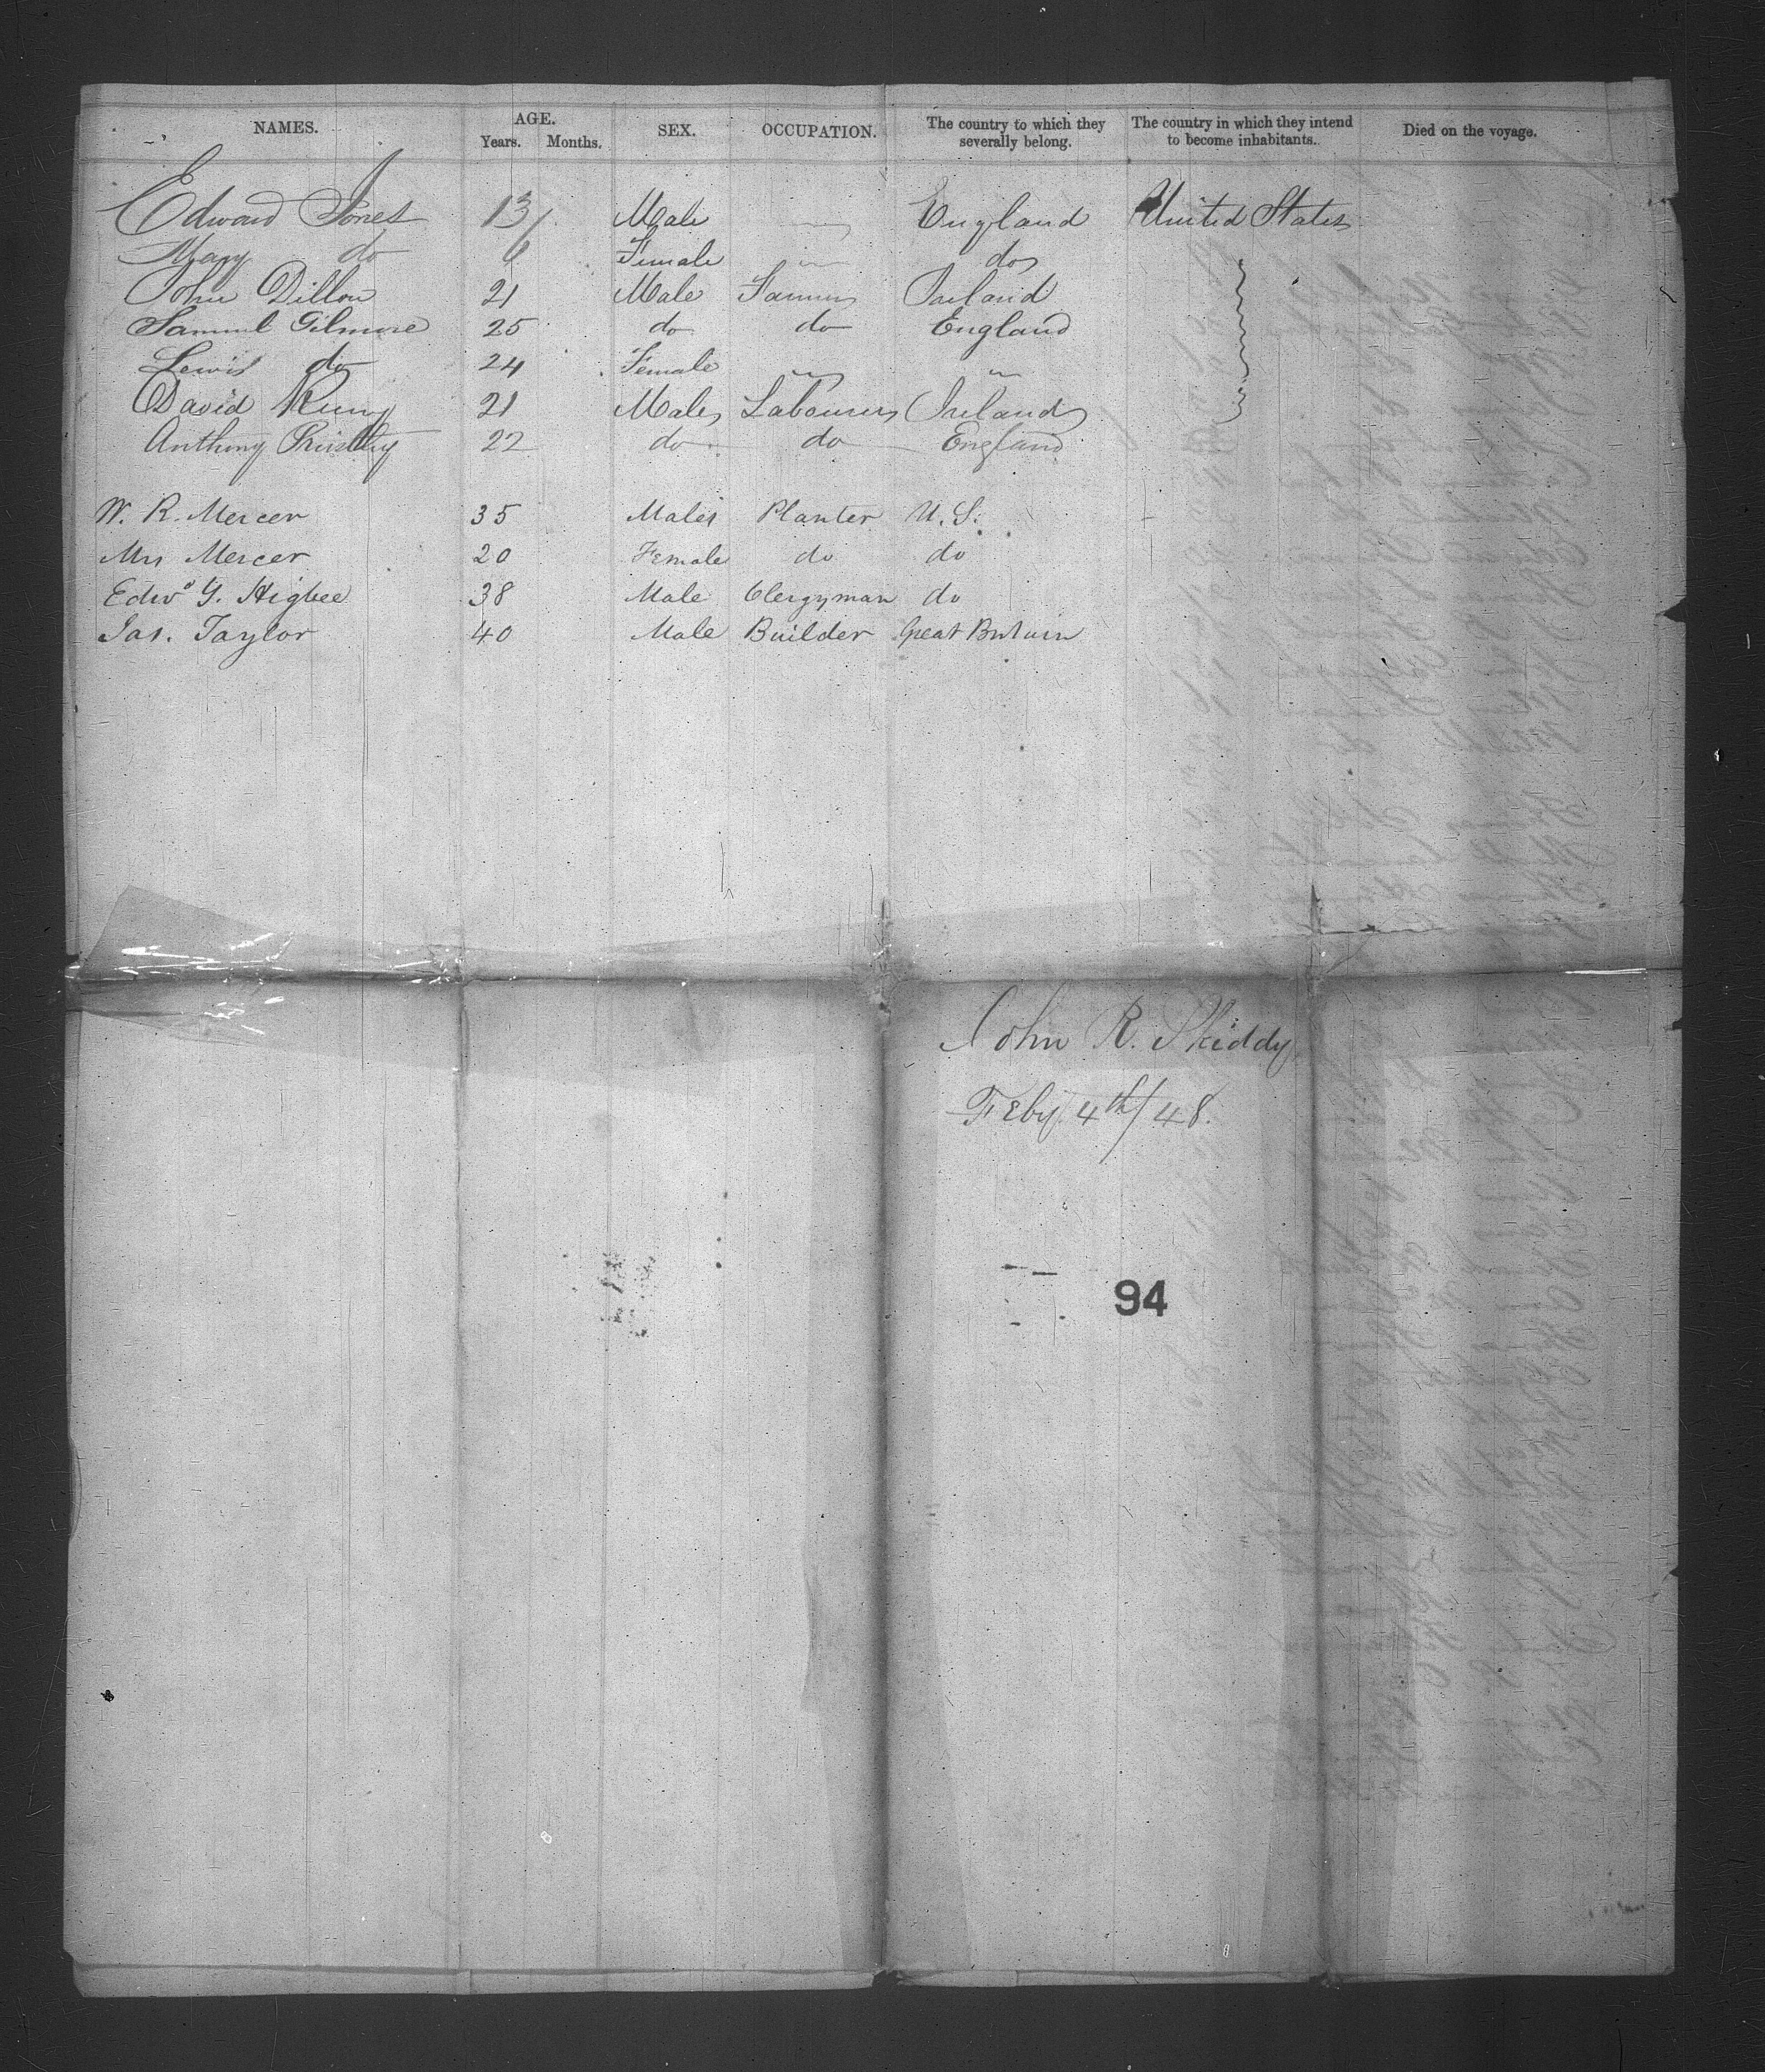 NAMES. AGE. SEX. OCCUPATION. The country to which they severally belong. The country in which they intend to become inhabitants. Died on the voyage.
Years. Months.
Edward Jones 13 Male England United States
Mary do 6 Female do
John Dillon 21 Male Farmer Ireland
Samuel Gilmore 25 do do England
Lewis do 24 Female
David 21 Male Labourer Ireland
Anthony Priestley 22 do do England
W. R. Mercer 35 Male Planter U. S.
Mrs Mercer 20 Female do do
Edwd Y. Higbee 38 Male Clergyman do
Jas. Taylor 40 Male Builder Great Britain
John R. Skiddy
Feby 4th/48.
94